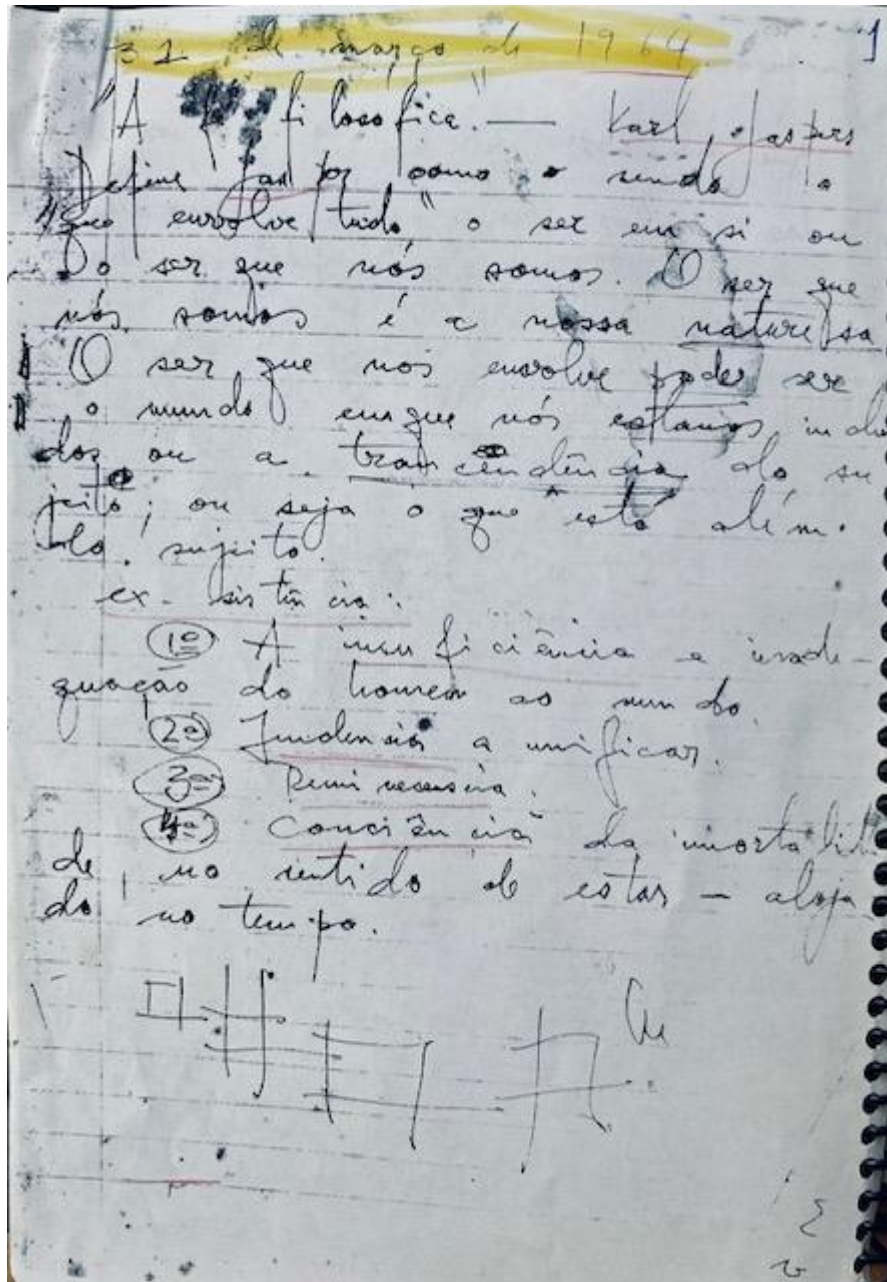 31 de março de 1964 1
"A fé filosófica." — Karl Jaspers
Define Jasper como o sendo o
"que envolve tudo" o ser em si ou
o ser que nós somos. O ser que
nós somos é a nossa naturesa
O ser que nos envolve poder ser
o mundo em que nós estamos inclu
dos ou a transcendência do su
jeito; ou seja o que está além
do sujeito.
ex-sistência:
1º A insuficiência e inade-
quação do homem ao mundo.
2º Tendencia a unificar.
3ª Reminecencia.
4ª Conciência da imortalida
de no sentido de estar — aloja
do no tempo.